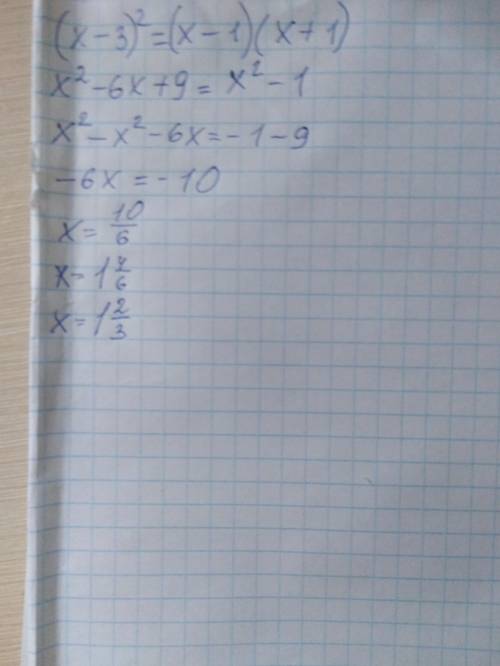 (x-3)²=(x-1)(x+1)
x²-6x+9=x²-1
x²-x²-6x=-1-9
-6x=-10
x=10/6
x=1 4/6
x=1 2/3